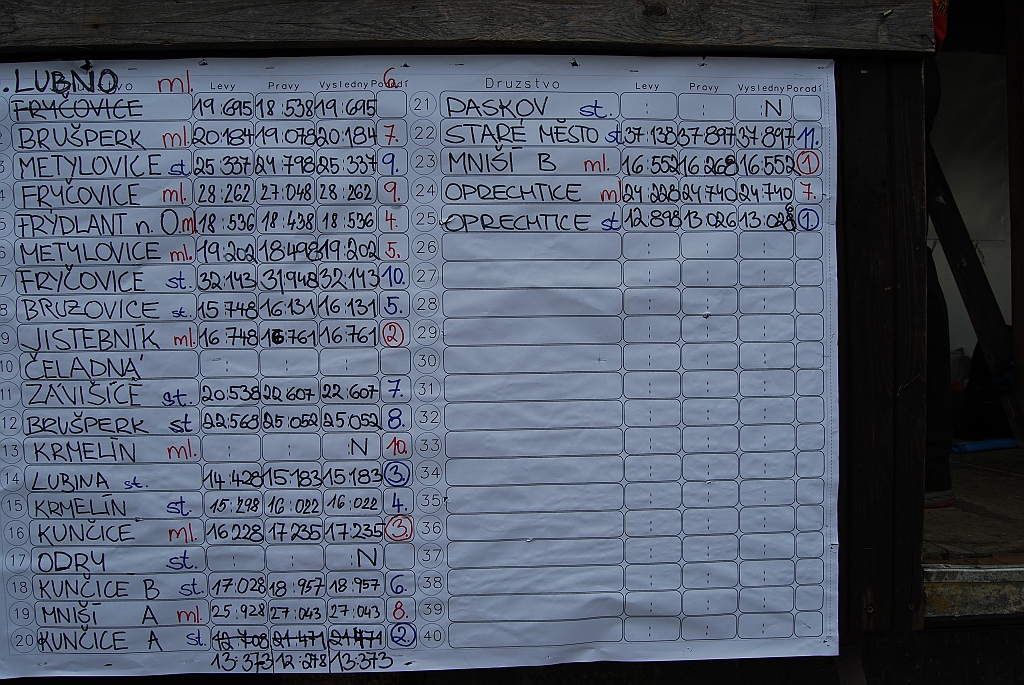 . LUBNO ml. 6.
Levy Pravy Vysledny Poradi
FRYČOVICE 19.695 18.538 19.695
BRUŠPERK ml. 20.184 19.078 20.184 7.
METYLOVICE st. 25.337 24.798 25.337 9.
FRYČOVICE ml. 28:262 27:048 28:262 9.
FRÝDLANT n. O. ml. 18:536 18:438 18:536 4.
METYLOVICE ml. 19.202 18498 19.202 5.
FRYČOVICE st. 32:143 31.948 32:143 10.
8 BRUZOVICE st. 15748 16131 16131 5.
9 JISTEBNÍK ml. 16748 16761 16.761 2
10 ČELADNÁ
11 ZÁVIŠICE st. 20:538 22607 22:607 7.
12 BRUŠPERK st 22:568 25:052 25:052 8.
13 KRMELÍN ml. N 10.
14 LUBINA st. 14:428 15:183 15:183 3
15 KRMELÍN st. 15:298 16:022 16:022 4.
16 KUNČICE ml. 16228 17235 17:235 3
17 ODRY st. N
18 KUNČICE B st. 17:028 18.957 18.957 6.
19 MNIŠÍ A ml. 25.928 27:043 27:043 8.
20 KUNČICE A st. 12708 21471 21471 2
13:373 12:278 13:373
Druzstvo Levy Pravy Vysledny Poradi
21 DASKOV st. N
22 STARÉ MĚSTO st 37:138 37897 37897 11.
23 MNIŠÍ B ml. 16:552 16:268 16:552 1
24 OPRECHTICE ml 24:228 24740 24740 7.
25 OPRECHTICE st 12:898 13026 13:028 1
26
27
28
29
30
31
32
33
34
35
36
37
38
39
40